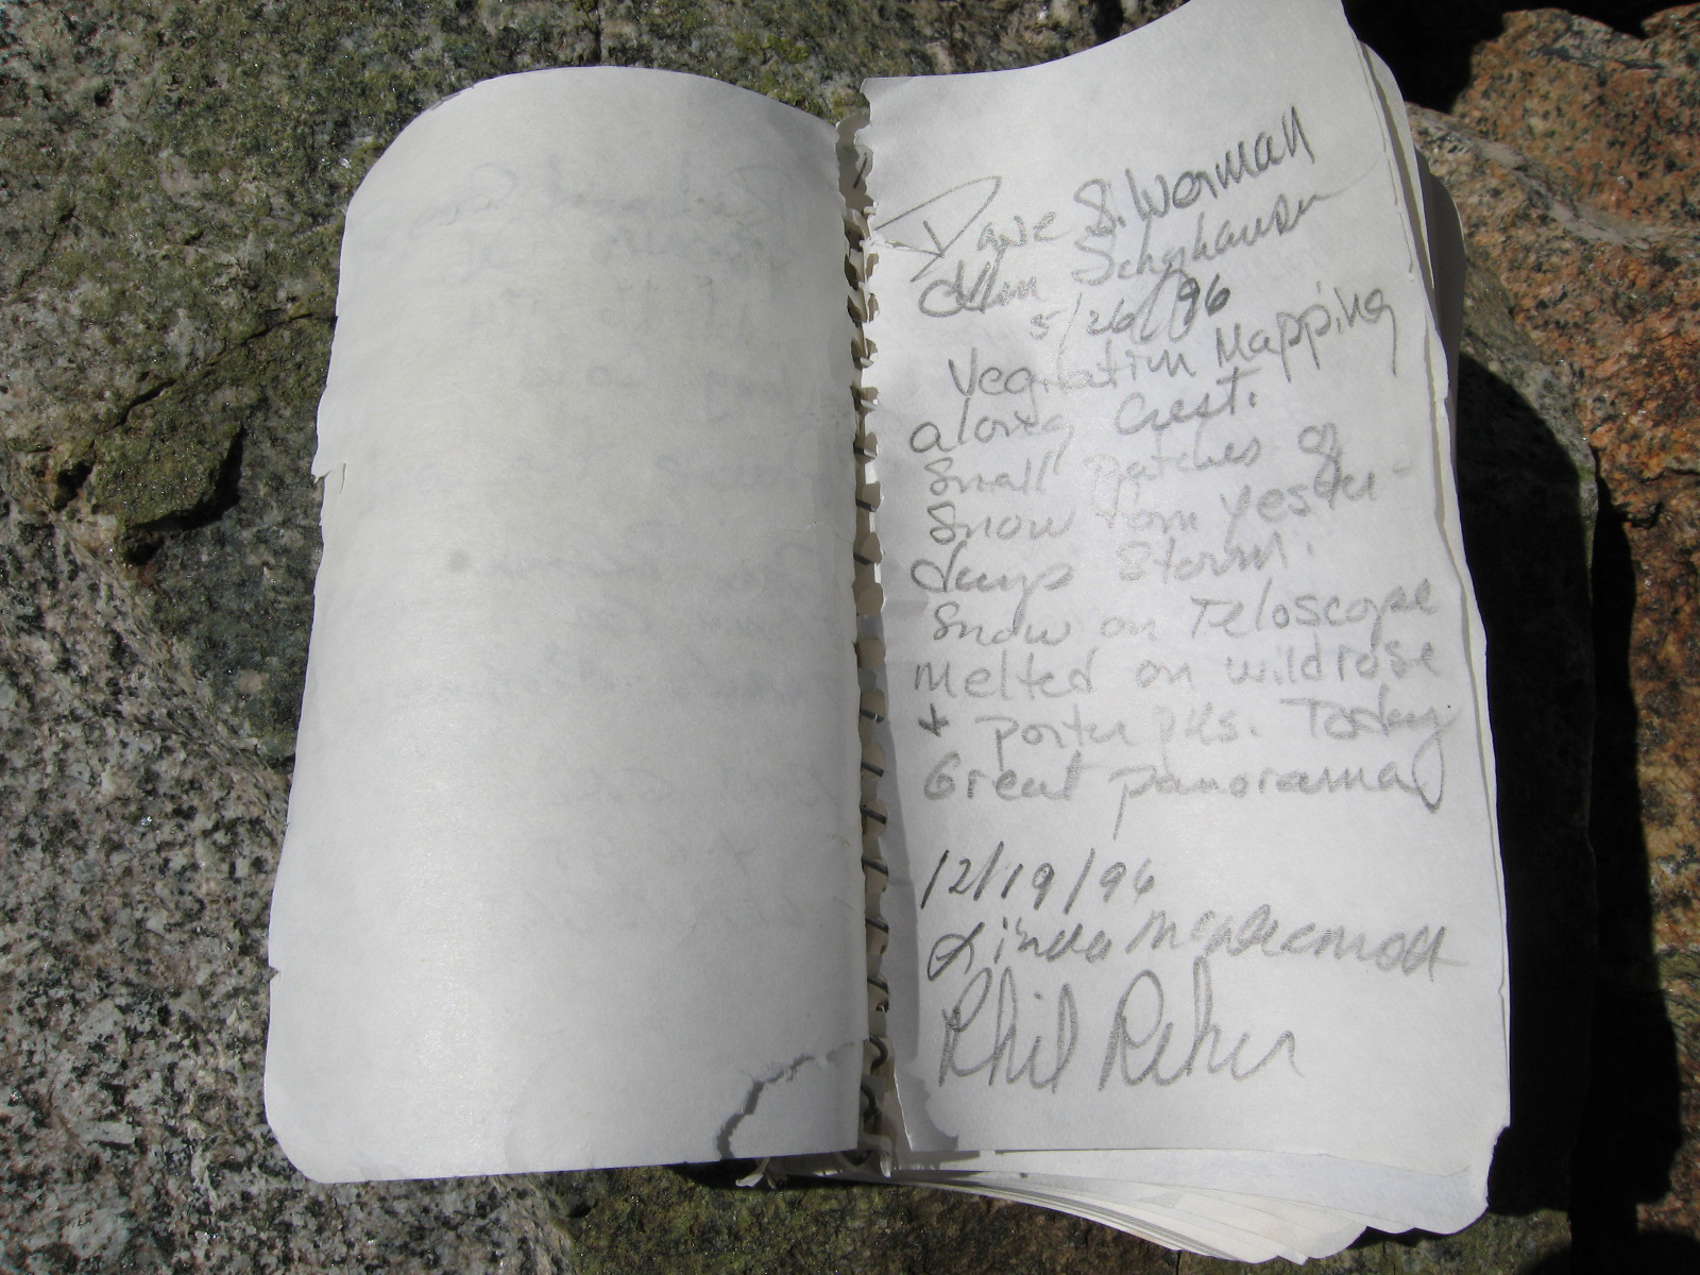 Dave S. Werman
5/26/96
Vegitation Mapping
along Crest.
Small patches of
Snow from yester-
days Storm.
Snow on Teloscope
Melted on wildrose
+ porter pks. Today
Great panorama
12/19/96
Linda McDermott
Phil Reher